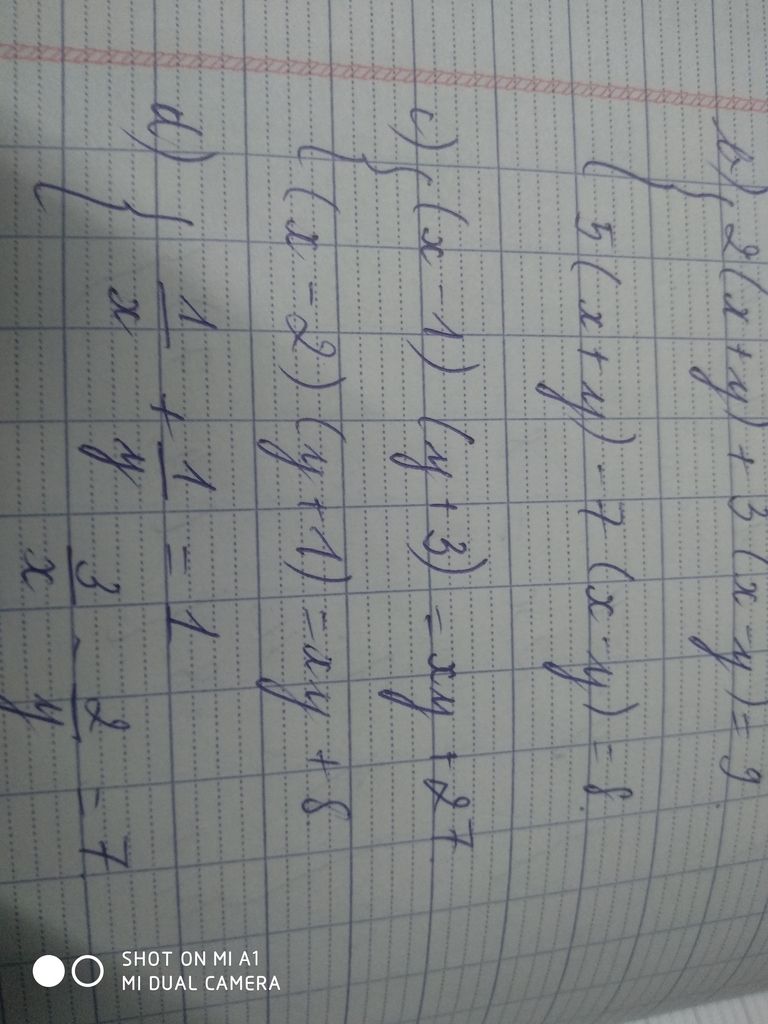 b) { 2(x+y) + 3(x-y) = 9
5(x+y) - 7(x-y) = 8
c) { (x-1) (y+3) = xy + 27
(x-2) (y+1) = xy + 8
d) { 1/x + 1/y = 1
3/x - 2/y = 7
SHOT ON MI A1
MI DUAL CAMERA